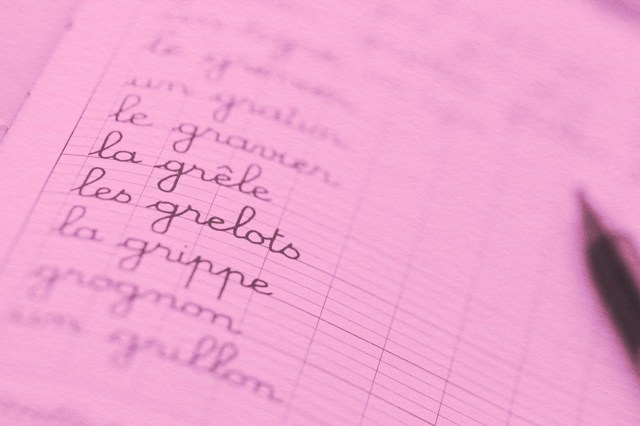 un gratin
le gravier
la grêle
les grelots
la grippe
grognon
un grillon